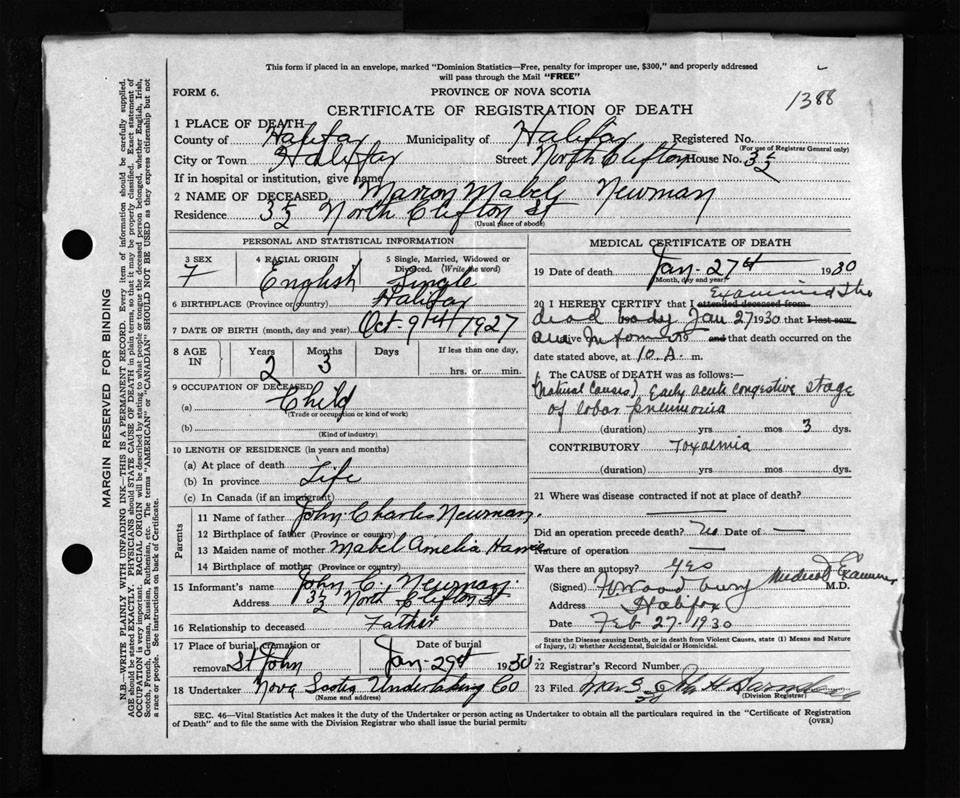 This form if placed in an envelope, marked "Dominion Statistics—Free, penalty for improper use, $300," and properly addressed
will pass through the Mail "FREE"
FORM 6.
PROVINCE OF NOVA SCOTIA
1388
CERTIFICATE OF REGISTRATION OF DEATH
1 PLACE OF DEATH
County of Halifax Municipality of Halifax Registered No.
(For use of Registrar General only)
City or Town Halifax Street North Clifton House No. 3½
If in hospital or institution, give name
2 NAME OF DECEASED Marion Mabel Newman
Residence 3½ North Clifton St
(Usual place of abode)
PERSONAL AND STATISTICAL INFORMATION
3 SEX F
4 RACIAL ORIGIN English
5 Single, Married, Widowed or Divorced. (Write the word) Single
6 BIRTHPLACE (Province or country) Halifax
7 DATE OF BIRTH (month, day and year) Oct-9th 1927
8 AGE IN Years 2 Months 3 Days If less than one day, hrs. or min.
9 OCCUPATION OF DECEASED
(a) Child
(Trade or occupation or kind of work)
(b)
(Kind of industry)
10 LENGTH OF RESIDENCE (in years and months)
(a) At place of death
(b) In province Life
(c) In Canada (if an immigrant)
Parents
11 Name of father John Charles Newman.
12 Birthplace of father (Province or country)
13 Maiden name of mother Mabel Amelia
14 Birthplace of mother (Province or country)
15 Informant's name John C. Newman.
Address 3½ North Clifton St
16 Relationship to deceased Father
17 Place of burial, cremation or removal St John
Date of burial Jan-29th 1930
18 Undertaker Nova Scotia Undertaking Co
(Name and address)
MEDICAL CERTIFICATE OF DEATH
19 Date of death Jan-27th 1930
(Month, day and year)
Examined the
20 I HEREBY CERTIFY that I attended deceased from
dead body Jan 27 1930 that I last saw
alive 19 and that death occurred on the
date stated above, at 10. A. m.
The CAUSE OF DEATH was as follows:—
(Natural Causes) Early acute congestive stage
of lobar pneumonia
(duration) yrs mos 3 dys.
CONTRIBUTORY Toxaemia
(duration) yrs mos dys.
21 Where was disease contracted if not at place of death?
Did an operation precede death? No Date of —
Nature of operation —
Was there an autopsy? Yes
(Signed) Woodbury Medical Examiner M.D.
Address Halifax
Date Feb 27-1930
State the Disease causing Death, or in death from Violent Causes, state (1) Means and Nature
of Injury, (2) whether Accidental, Suicidal or Homicidal.
22 Registrar's Record Number
23 Filed Mar 3 30
(Division Registrar)
SEC. 46—Vital Statistics Act makes it the duty of the Undertaker or person acting as Undertaker to obtain all the particulars required in the "Certificate of Registration
of Death" and to file the same with the Division Registrar who shall issue the burial permit.
(OVER)
MARGIN RESERVED FOR BINDING
N.B.—WRITE PLAINLY WITH UNFADING INK—THIS IS A PERMANENT RECORD. Every item of information should be carefully supplied.
AGE should be stated EXACTLY. PHYSICIANS should STATE CAUSE OF DEATH in plain terms, so that it may be properly classified. Exact statement of
OCCUPATION is very important. RACIAL ORIGIN will be described by stating to what people or tongue the deceased person belonged, whether English, Irish,
Scotch, French, German, Russian, Ruthenian, etc. The terms "AMERICAN" or "CANADIAN" SHOULD NOT BE USED as they express citizenship but not
a race or people. See instructions on back of Certificate.